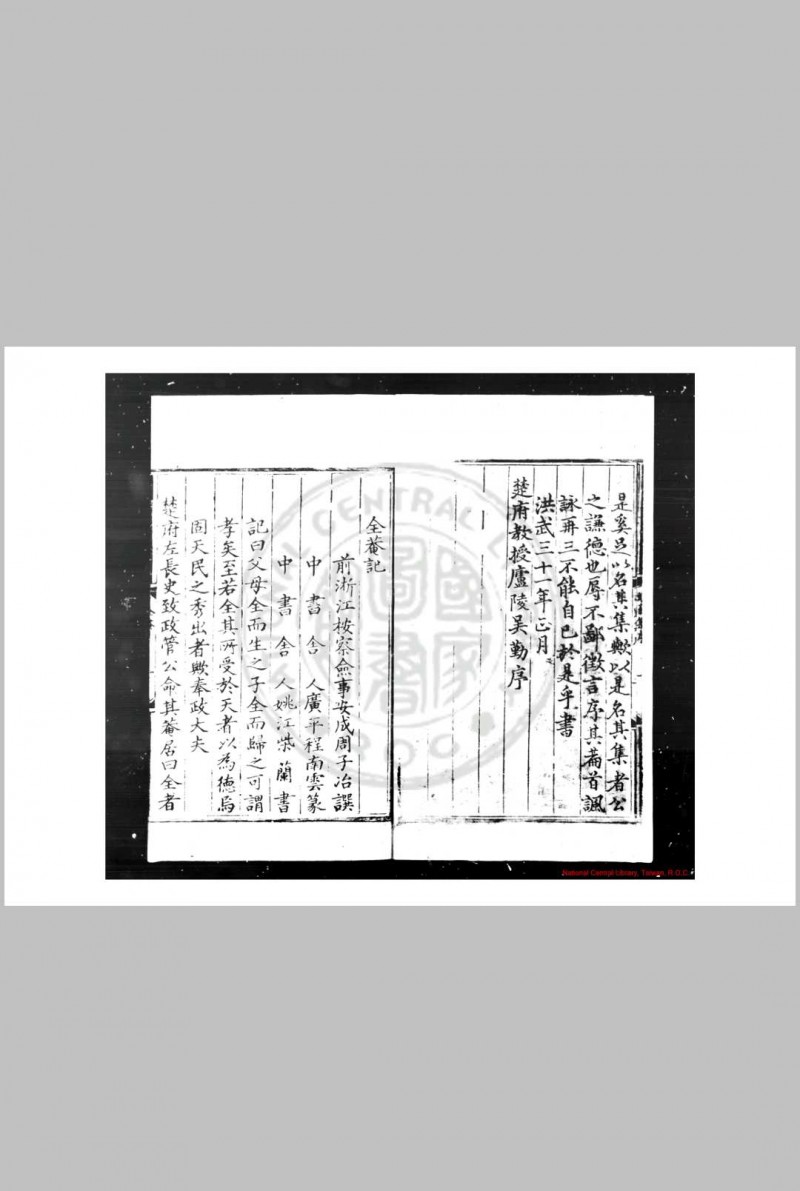 是奚足以名其集歟以是名其集者公
之謙德也辱不鄙徵言序其萹首諷
詠再三不能自已於是乎書
洪武三十一年正月
楚府教授廬陵吳勤序
全菴記
前浙江按察僉事安成周子冶譔
中書舍人廣平程南雲篆
中書舍人姚江柴蘭書
記曰父母全而生之子全而歸之可謂
孝矣至若全其所受於天者以為德焉
固天民之秀出者歟奉政大夫
楚府左長史致政管公命其菴居曰全者
National Central Library, Taiwan, R.O.C